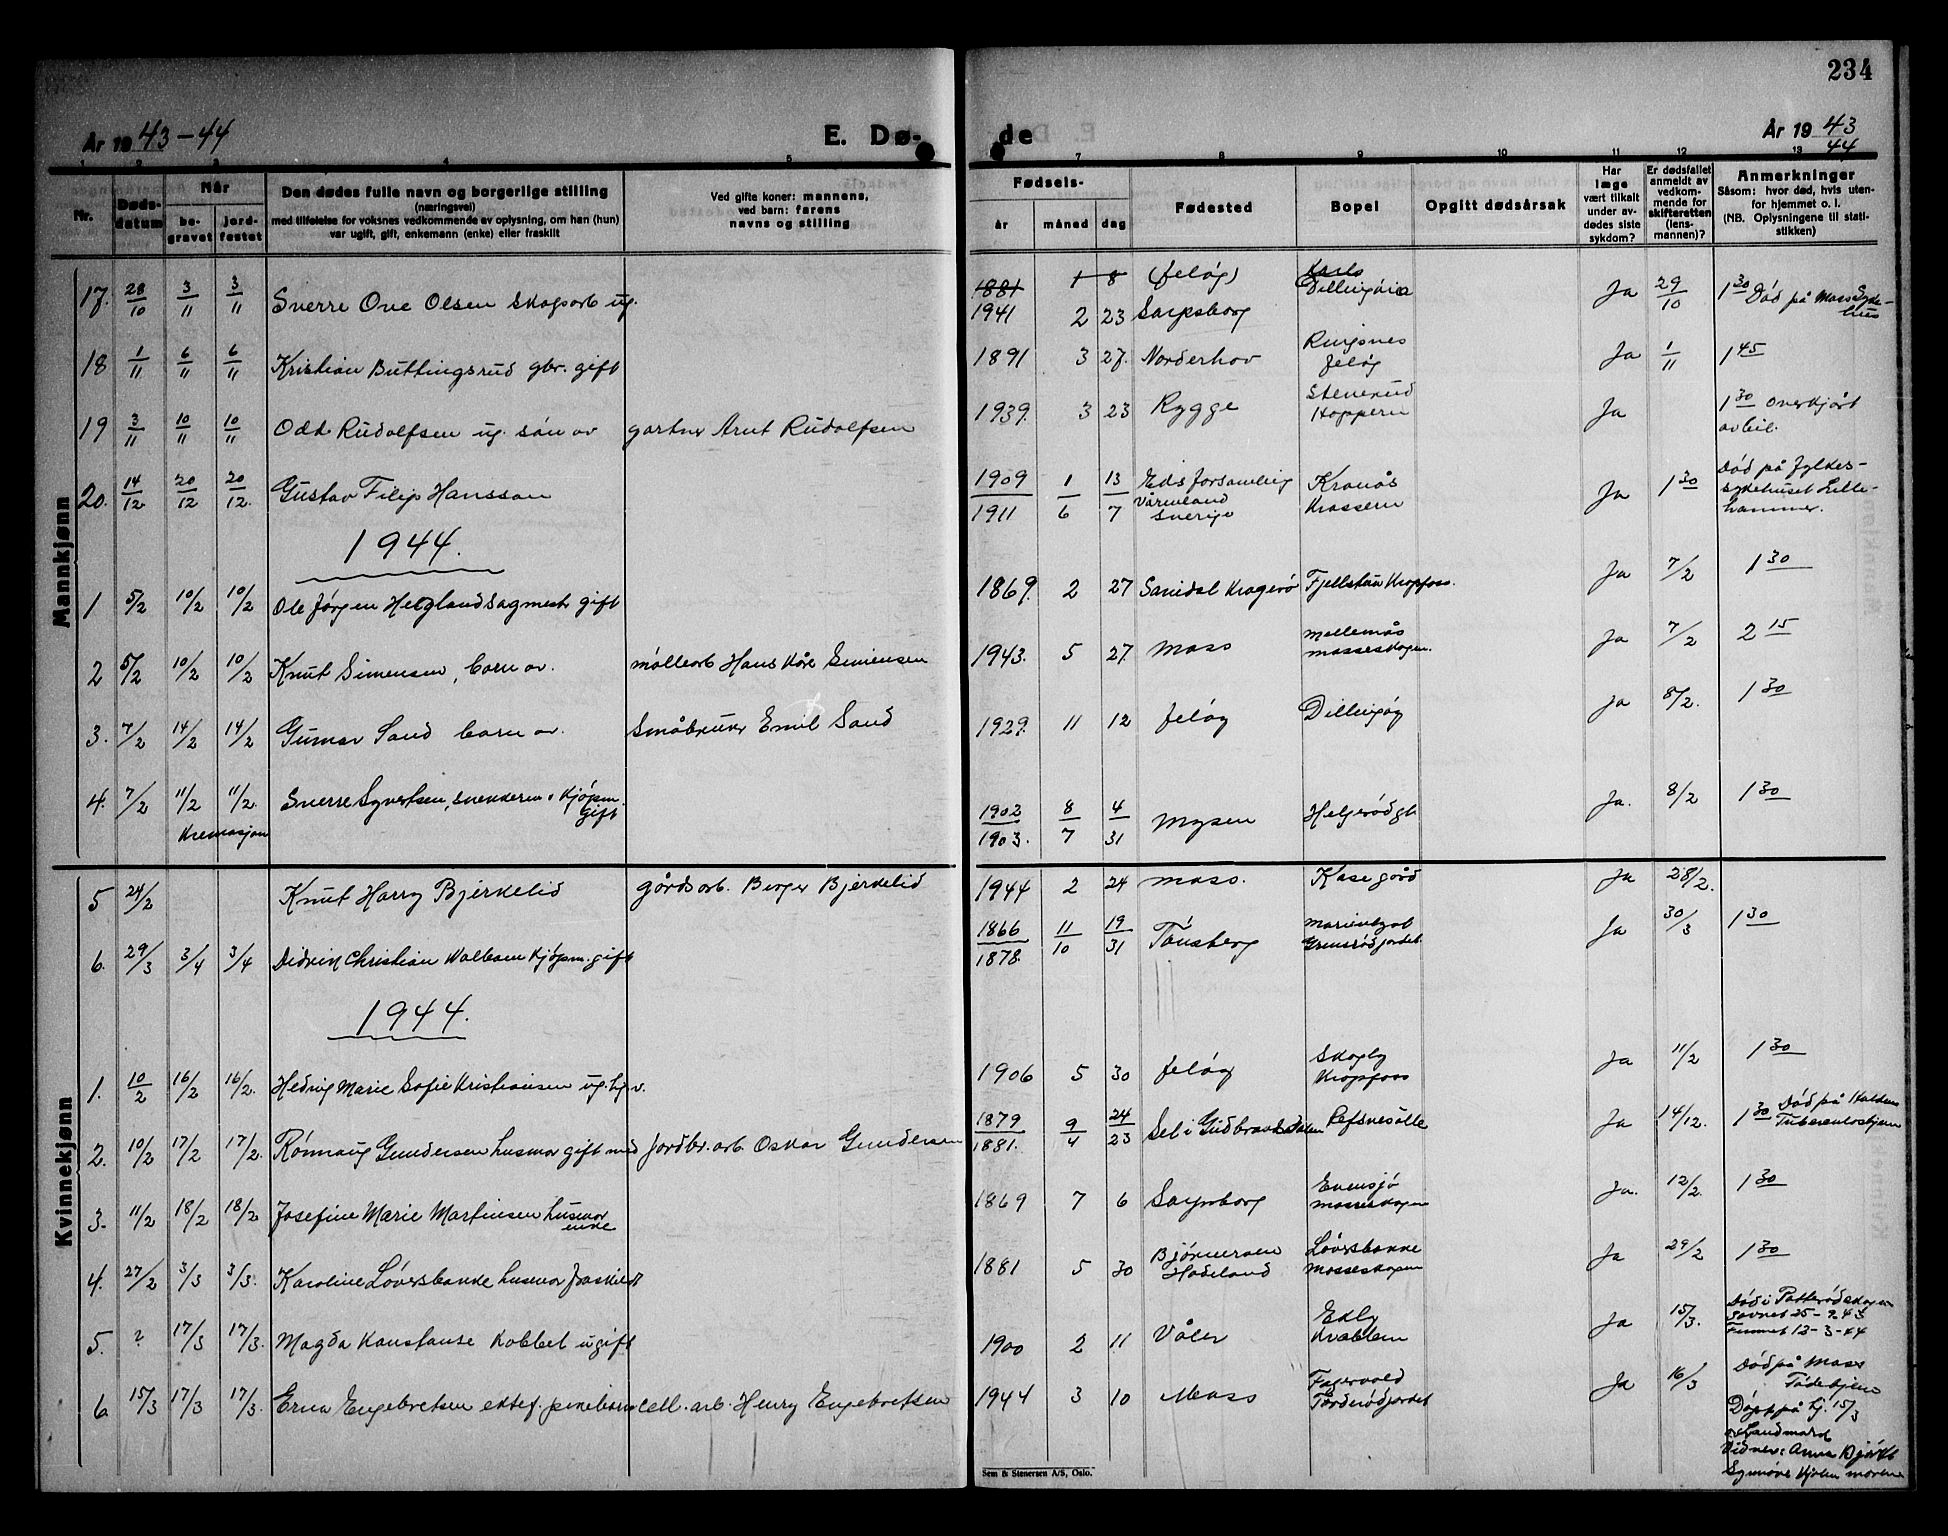 234
År 1943-44
E. Dø-
de
År 1943
44
1 2 3 4 5
7 8 9 10 11 12 13
Nr.
Døds-
datum
Når
be-
gravet
jord-
festet
Den dødes fulle navn og borgerlige stilling
(næringsvei)
med tilføielse for voksnes vedkommende av oplysning, om han (hun)
var ugift, gift, enkemann (enke) eller fraskilt
Ved gifte koner: mannens,
ved barn: farens
navns og stilling
Fødsels-
år måned dag
Fødested
Bopel
Opgitt dødsårsak
Har
læge
vært tilkalt
under av-
dødes siste
sykdom?
Er dødsfallet
anmeldt av
vedkom-
mende for
skifteretten
(lens-
mannen)?
Anmerkninger
Såsom: hvor død, hvis uten-
for hjemmet o. l.
(NB. Oplysningene til stati-
stikken)
Mannkjønn
17. 28/10 3/11 3/11 Sverre Ove Olsen skogsarb ug. 1881 1 8 (Jeløy) Dillingøia Ja 29/10 1 30 Død på Moss Syke-
hus
1941 2 23 Sarpsborg
18 1/11 6/11 6/11 Kristian Buttingsrud gbr. gift 1891 3 27. Norderhov Ringsnes
Jeløy Ja 1/11 1 45
19 3/11 10/11 10/11 Odd Rudolfsen ug. søn av gartner Arnt Rudolfsen 1939. 3 23 Rygge Stenerud
Hoppern Ja 1 30 Overkjørt
av bil.
20. 14/12 20/12 20/12. Gustav Filip Hansson 1909 1 13 Eds forsamling
Värmland
Sverige Kronås
Krossern Ja 1 30 Død på Fylkes-
sykehuset Lille-
hammer.
1911 6 7
1944.
1 5/2 10/2 10/2 Ole Jørgen Hegland Sagmestr gift 1869. 2 27 Sanidal Kragerø Fjellstua Kropfoss. Ja 7/2 1 30
2 5/2 10/2 10/2 Knut Simensen, barn av. møllearb Hans Kåre Simensen 1943. 5 27. Moss Mellemås
Mosseskogen. Ja 7/2 2 15
3. 7/2 14/2 14/2 Gunnar Sand barn av. Småbruker Emil Sand 1929. 11 12 Jeløy Dillingøy Ja 8/2. 1 30
4. 7/2 11/2 11/2. Sverre Syvertsen, snekkerm. Kjøpm.
gift
Kremasjon
1902 8 4 Mysen Helgerødgt Ja. 8/2 1 30
1903. 7 31
5 24/2 Knut Harry Bjerkelid gårdsarb. Berger Bjerkelid 1944 2 24 Moss. Kase gård Ja 28/2.
6. 29/3 3/4 3/4 Didrik Christian Kjøpm. gift 1866 11 19 Tønsberg Grimsrødjordet Ja 30/3 1 30
1878. 10 31
1944.
Kvinnekjønn
1. 10/2 16/2 16/2. Hedvig Marie Sofie Kristiansen ug. 1906 5 30 Jeløy Skogly
Kropfoss Ja 11/2 1 30
2. 10/2 17/2 17/2. Rønnaug Gundersen husmor gift med Jordbr. arb. Oskar Gundersen 1879 9 24 Sel i Gudbrandsdalen Refsnesalle Ja 14/12. 1 30 Død på
Tuberculoshjem
1881. 4 23
3. 11/2 18/2 18/2 Josefine Marie Martinsen husmor
enke 1869 7 6 Sarpsborg Evensjø
Mosseskogen Ja. 12/2. 1 30
4. 27/2 3/3 3/3. Karoline Løversbakke husmor fraskildt 1881 5 30 Bjørneroen
Hadeland Løversbakke
Mosseskogen Ja 29/2 1 30
5. ? 17/3 17/3. Magda Konstanse Kobbel ugift 1900 2 11 Våler Edly
Kvablem Ja 15/3. Død i Patterødskogen
Savnet 25-9.43
Funnet 12-3-44
6 15/3 17/3 17/3. Erna Engebretsen ektef. pikebarn cell. arb. Henry Engebretsen 1944 3 10 Moss Fagervold
Tørderødjordet Ja 16/3 Død på Moss
Fødehjem
Døpt på hj. 15/3
av Landmark
Vidner: Anna
moren
Sem & Stenersen A/S, Oslo.